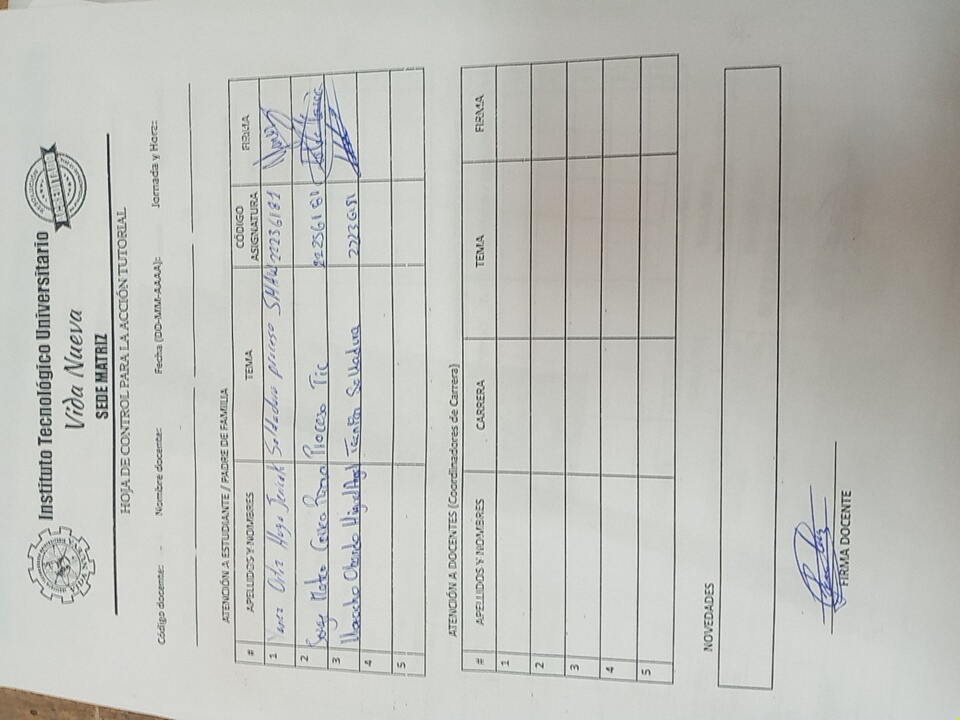 Instituto Tecnológico Universitario
Vida Nueva
SEDE MATRIZ
VIDA NUEVA
RESOLUCIÓN
ACREDITADO
HOJA DE CONTROL PARA LA ACCIÓN TUTORIAL
Código docente: - Nombre docente: Fecha (DD-MM-AAAA): Jornada y Hora:
ATENCIÓN A ESTUDIANTE / PADRE DE FAMILIA
# APELLIDOS Y NOMBRES TEMA CÓDIGO ASIGNATURA FIRMA
1 Yanez Ortiz Hugo Soldadura proceso SMAW 22236181 Yanez
2 Mateo Proceso Tic 22236181
3 Obando Miguel Angel 22236181
4
5
ATENCIÓN A DOCENTES (Coordinadores de Carrera)
# APELLIDOS Y NOMBRES CARRERA TEMA FIRMA
1
2
3
4
5
NOVEDADES
FIRMA DOCENTE